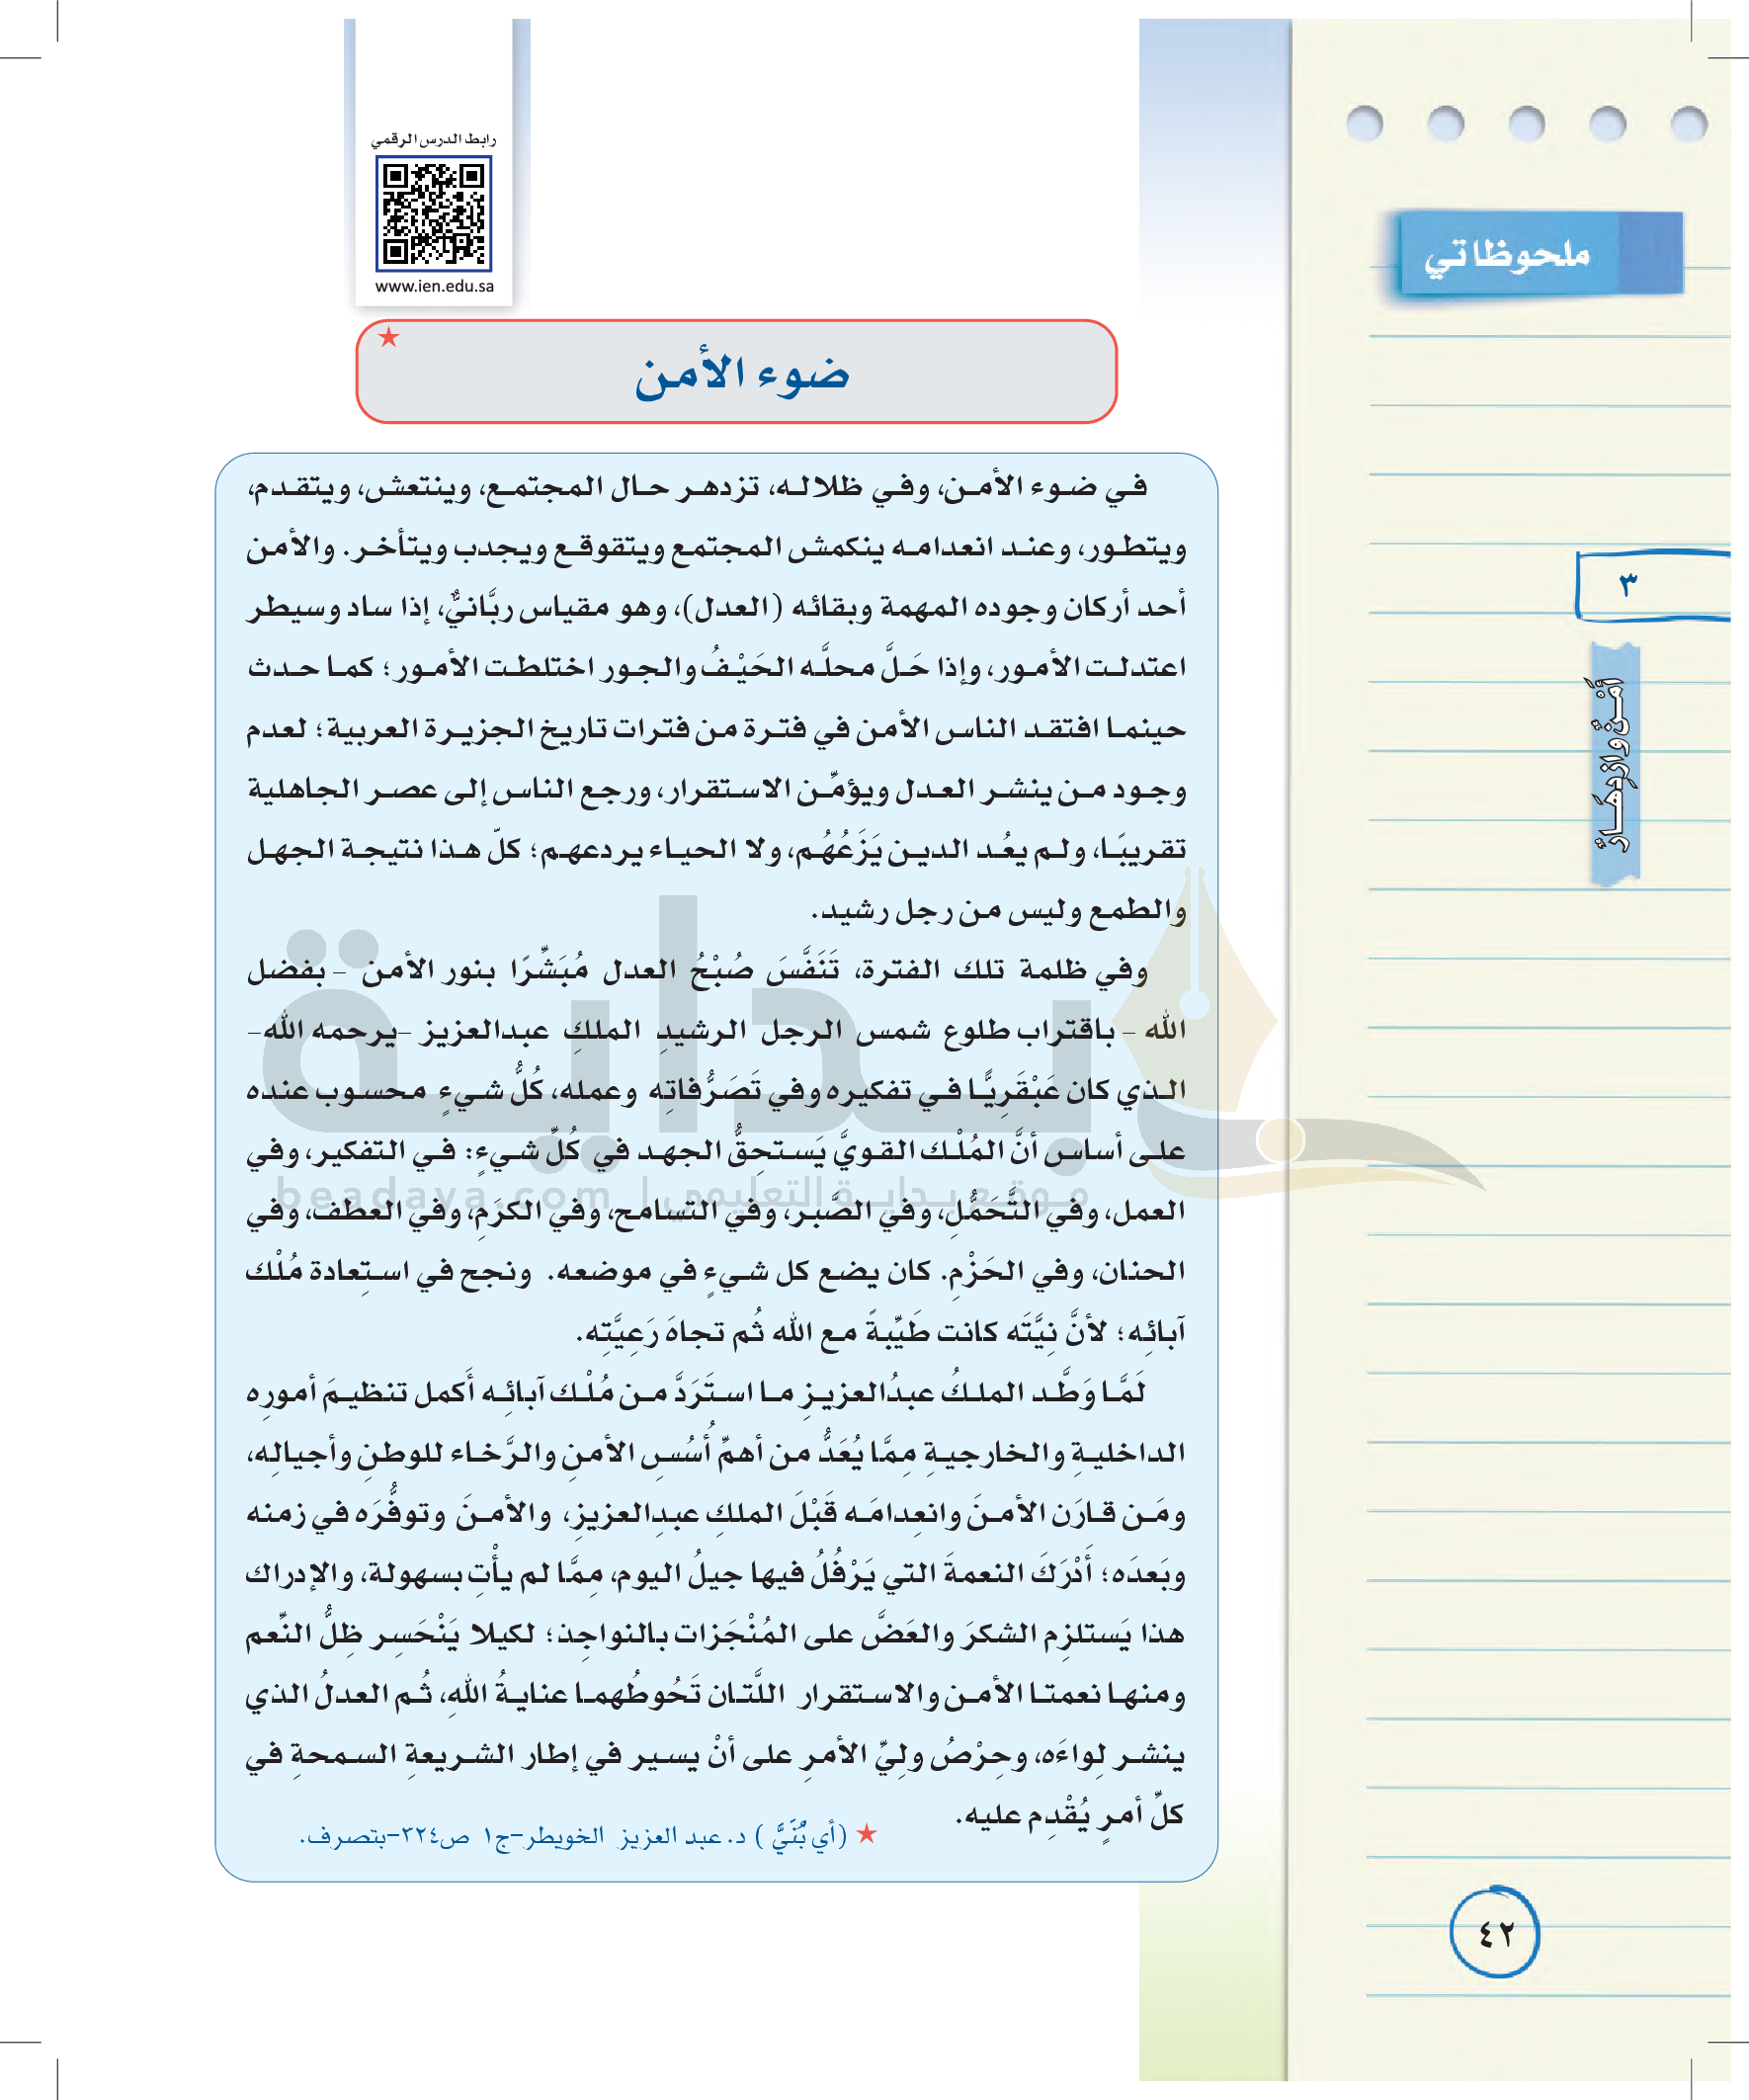 رابط الدرس الرقمي
www.ien.edu.sa
ملحوظاتي
٣
أمن وازدهار
ضوء الأمن
في ضوء الأمن، وفي ظلاله، تزدهر حال المجتمع، وينتعش، ويتقدم،
ويتطور، وعند انعدامه ينكمش المجتمع ويتقوقع ويجدب ويتأخر. والأمن
أحد أركان وجوده المهمة وبقائه (العدل)، وهو مقياس ربَّانيٌّ، إذا ساد وسيطر
اعتدلت الأمور، وإذا حَلَّ محلَّه الحَيْفُ والجور اختلطت الأمور؛ كما حدث
حينما افتقد الناس الأمن في فترة من فترات تاريخ الجزيرة العربية؛ لعدم
وجود من ينشر العدل ويؤمِّن الاستقرار، ورجع الناس إلى عصر الجاهلية
تقريبًا، ولم يعُد الدين يَزَعُهُم، ولا الحياء يردعهم؛ كلّ هذا نتيجة الجهل
والطمع وليس من رجل رشيد.
وفي ظلمة تلك الفترة، تَنَفَّسَ صُبْحُ العدل مُبَشِّرًا بنور الأمن – بفضل
الله – باقتراب طلوع شمس الرجل الرشيدِ الملكِ عبدالعزيز –يرحمه الله–
الذي كان عَبْقَرِيًّا في تفكيره وفي تَصَرُّفاتِه وعمله، كُلُّ شيءٍ محسوب عنده
على أساس أنَّ المُلْك القويَّ يَستحِقُّ الجهد في كُلِّ شيءٍ: في التفكير، وفي
العمل، وفي التَّحَمُّلِ، وفي الصَّبر، وفي التسامح، وفي الكرَمِ، وفي العطف، وفي
الحنان، وفي الحَزْمِ. كان يضع كل شيءٍ في موضعه. ونجح في استِعادة مُلْك
آبائِه؛ لأنَّ نِيَّتَه كانت طَيِّبةً مع الله ثُم تجاهَ رَعِيَّتِه.
لَمَّا وَطَّد الملكُ عبدُالعزيزِ ما استَرَدَّ من مُلْك آبائِه أَكمل تنظيمَ أمورِه
الداخليةِ والخارجيةِ مِمَّا يُعَدُّ من أهمِّ أُسُسِ الأمنِ والرَّخاء للوطنِ وأجيالِه،
ومَن قارَن الأمنَ وانعِدامَه قَبْلَ الملكِ عبدِالعزيزِ، والأمنَ وتوفُّرَه في زمنه
وبَعدَه؛ أَدْرَكَ النعمةَ التي يَرْفُلُ فيها جيلُ اليوم، مِمَّا لم يأْتِ بسهولة، والإدراك
هذا يَستلزِم الشكرَ والعَضَّ على المُنْجَزات بالنواجِذ؛ لكيلا يَنْحَسِر ظِلُّ النِّعم
ومنها نعمتا الأمن والاستقرار اللَّتان تَحُوطُهما عنايةُ اللهِ، ثُم العدلُ الذي
ينشر لِواءَه، وحِرْصُ ولِيِّ الأمرِ على أنْ يسير في إطار الشريعةِ السمحةِ في
كلِّ أمرٍ يُقْدِم عليه.
(أي بُنَيَّ) د. عبد العزيز الخويطر–ج١ ص٣٢٤–بتصرف.
بداية
موقع بداية التعليمي | beadaya.com
٤٢